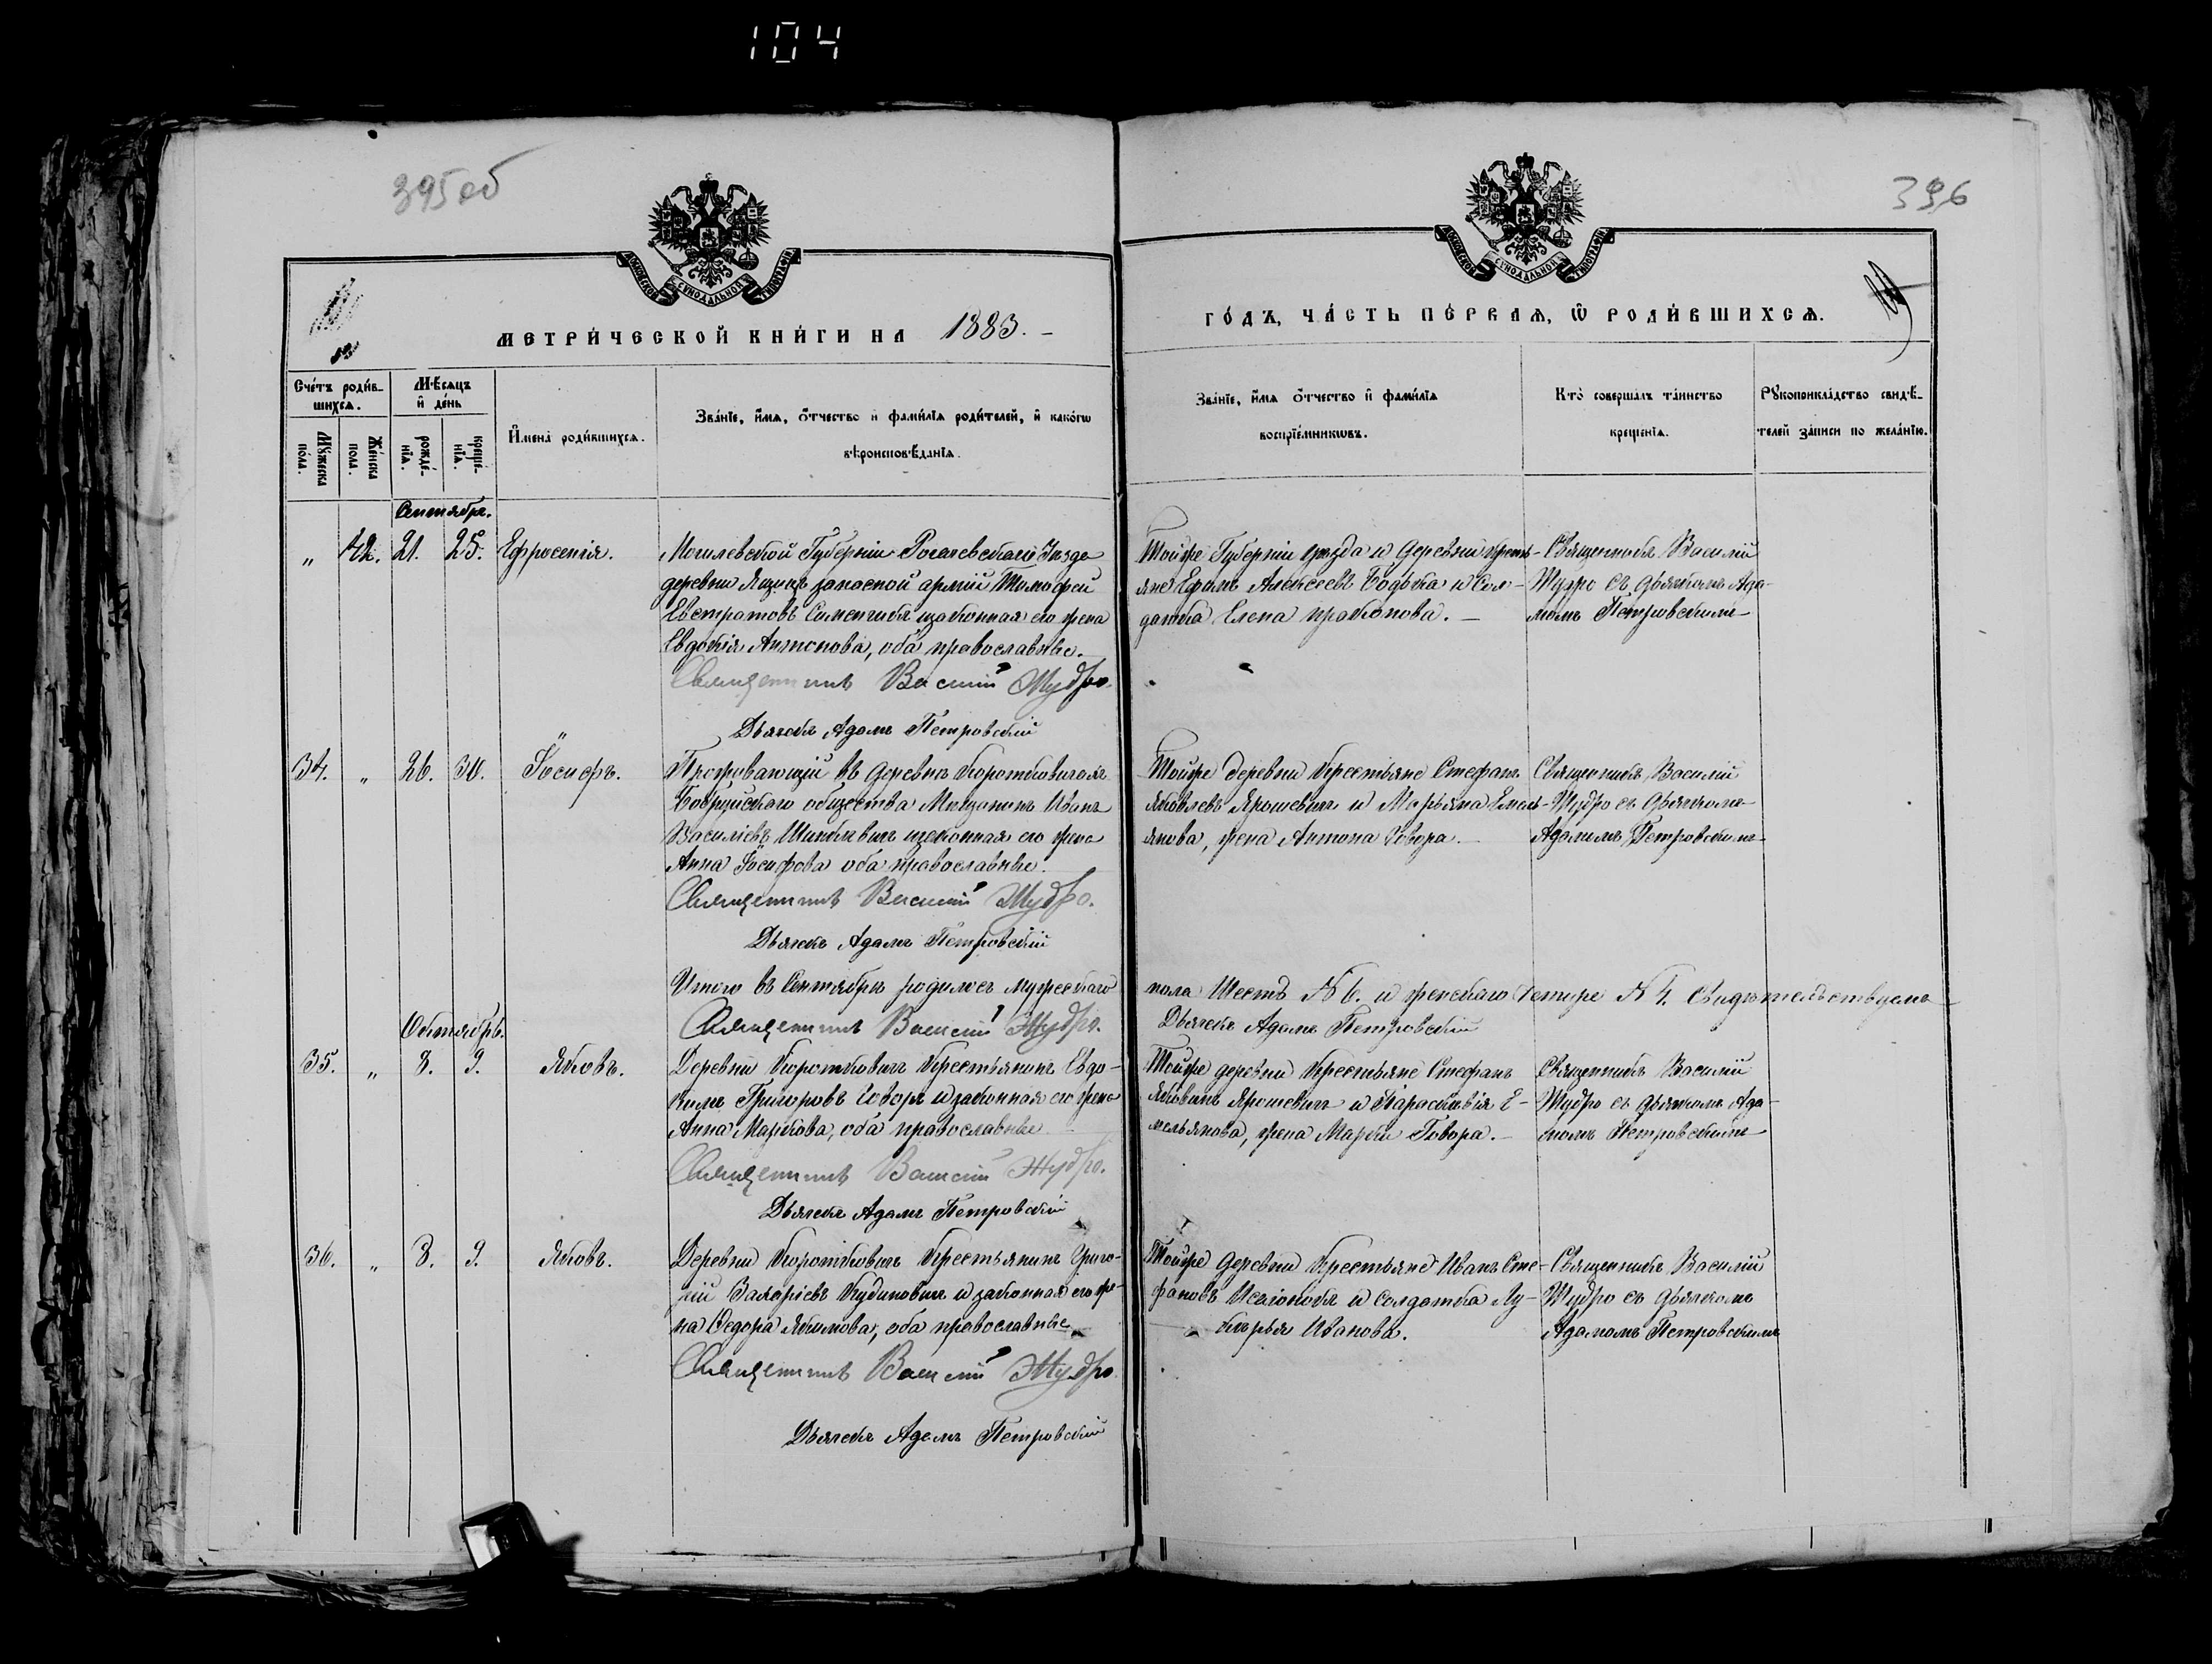 104
395 об
396
МОСКОВСКОЙ СѴНОДАЛЬНОЙ ТИПОГРАФІИ
МОСКОВСКОЙ СѴНОДАЛЬНОЙ ТИПОГРАФІИ
МЕТРИ́ЧЕСКОЙ КНИ́ГИ НА 1883.
ГО́ДЪ, ЧА́СТЬ ПЕ́РВАѦ, Ѡ РОДИ́ВШИХСѦ.
Сче́тъ роди́в-
шихсѧ.
Мꙋ́жеска по́ла.
Же́нска пола.
Мѣ́сѧцъ
и҆ де́нь
рожде́-
нїѧ.
креще́-
нїѧ.
И҆мена̀ роди́вшихсѧ.
Зва́нїе, и҆́мѧ, ѻ҆́тчество и҆ фами́лїѧ роди́телей, и҆ како́гѡ
вѣроисповѣ́данїѧ.
Зва́нїе, и҆́мѧ ѻ҆́тчество и҆ фами́лїѧ
воспрїе́мникѡвъ.
Кто̀ соверша́лъ та́инство
креще́нїѧ.
Рꙋкоприкла́дство свидѣ́-
телей за́писи по жела́нїю.
Сентябрь.
„ 42. 21. 25. Ефросенія.
Могилевской Губерніи Рогачевскаго Уезда
деревни запасной арміи Тимофей
Евстратовъ Сименчикъ и законная его жена
Евдокія Антонова, оба православные.
Священникъ Василій Мудро.
Дьячекъ Адамъ Петровскій
Тойже Губерніи уезда и деревни кресть-
яне Ефимъ Алексеевъ Бодока и Сол-
датка Елена .
Священникъ Василій
Мудро съ дьячкомъ Ада-
момъ Петровскимъ
34. „ 26. 30. Іосифъ.
Проживающій въ деревне Коротковичахъ
Бобруйскаго общества Мещанинъ Иванъ
Василіевъ и законная его жена
Анна Іосифова оба православные.
Священникъ Василій Мудро.
Дьячекъ Адамъ Петровскій
Тойже деревни Крестьяне Стефанъ
Яковлевъ Ярошевичъ и Марьяна Емель-
янова, жена Антона Говора.
Священникъ Василій
Мудро съ дьячкомъ
Адамомъ Петровскимъ
Итого въ Сентябре родилось мужескаго
пола Шесть № 6. и женскаго четыре № 4. Свидетельствуемъ
Священникъ Василій Мудро.
Дьячекъ Адамъ Петровскій
Октябрь.
35. „ 8. 9. Яковъ.
Деревни Короткович Крестьянинъ Евдо-
кимъ Григоровъ Говоръ и законная его жена
Анна Маркова, оба православные
Священникъ Василій Мудро.
Дьячекъ Адамъ Петровскій
Тойже деревни Крестьяне Стефанъ
Ярошевичъ и Параскивія Е-
мельянова, жена Марки Говора.
Священникъ Василій
Мудро съ дьячкомъ Ада-
момъ Петровскимъ
36. „ 8. 9. Яковъ.
Деревни Короткович Крестьянинъ Григо-
рій Захаріевъ Кудиновичъ и законная его же-
на Федора Якимова, оба православные
Священникъ Василій Мудро
Дьячекъ Адамъ Петровскій
Тойже деревни Крестьяне Иванъ Сте-
фановъ и солдатка Лу-
керья Иванова.
Священникъ Василій
Мудро съ дьячкомъ
Адамомъ Петровскимъ